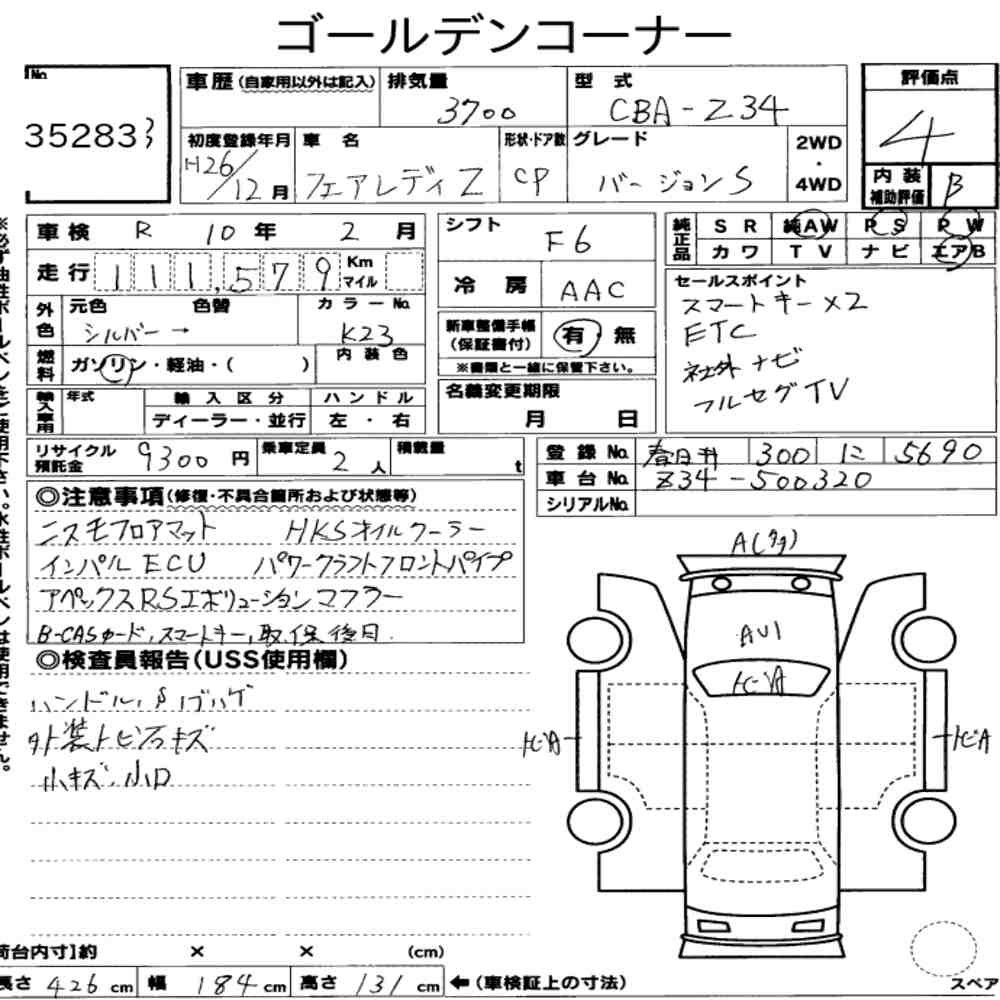 ゴールデンコーナー
No.
35283
車歴(自家用以外は記入) 排気量 型式 評価点
3700 CBA-Z34 4
初度登録年月 車名 形状・ドア数 グレード 2WD・4WD
H26/12月 フェアレディZ CP バージョンS
内装補助評価 B
車検 R 10年 2月
走行 111,579 Km マイル
外色 元色 色替 カラーNo.
シルバー→ K23
燃料 ガソリン・軽油・( ) 内装色
輸入車用 年式 輸入区分 ハンドル
ディーラー・並行 左・右
シフト F6
冷房 AAC
新車整備手帳(保証書付) 有・無
※書類と一緒に保管下さい。
名義変更期限
月 日
純正品 SR 純AW PS PW
カワ TV ナビ エアB
セールスポイント
スマートキー×2
ETC
社外ナビ
フルセグTV
リサイクル預託金 9300円 乗車定員 2人 積載量 t
登録No. 春日井 300 に 5690
車台No. Z34-500320
シリアルNo.
◎注意事項(修復・不具合箇所および状態等)
ニスモフロアマット HKSオイルクーラー
インパルECU パワークラフトフロントパイプ
アペックスRSエボリューションマフラー
B-CASカード,スマートキー,取,保 後日.
◎検査員報告(USS使用欄)
外装トビ石キズ
小キズ,小凹
A
AU1
トビA
トビA
トビA
荷台内寸】約 × × (cm)
長さ 426 cm 幅 184 cm 高さ 131 cm ←(車検証上の寸法)
スペア